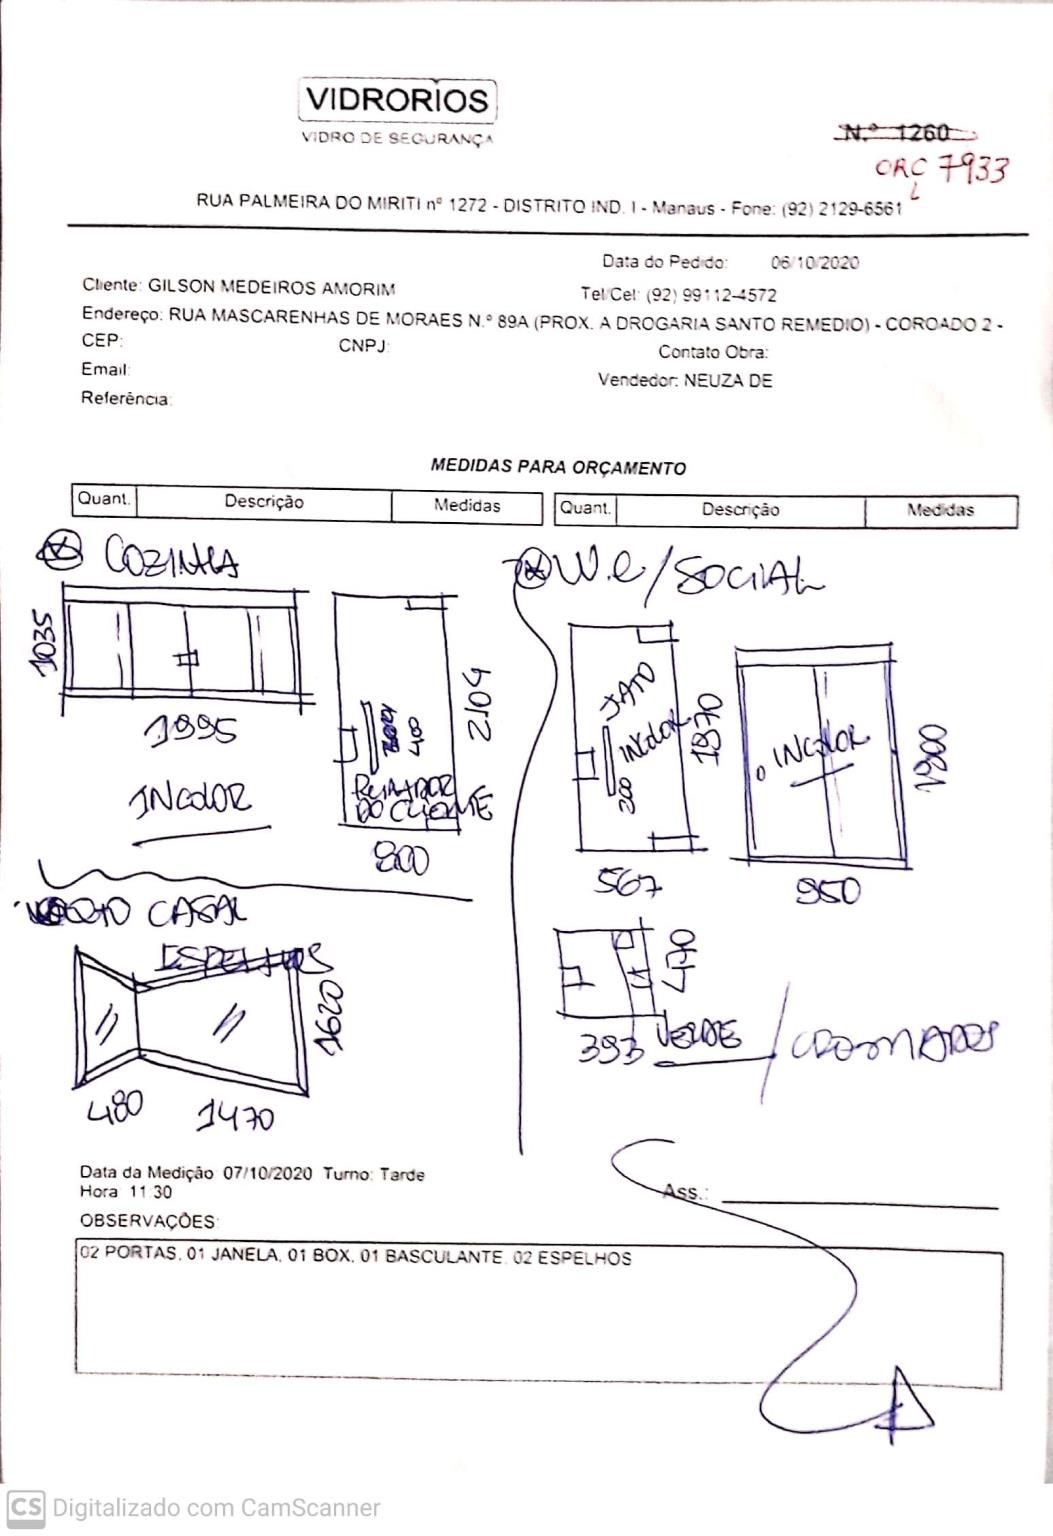 VIDRORIOS
VIDRO DE SEGURANÇA
N.º 1260
ORC 7933
RUA PALMEIRA DO MIRITI nº 1272 - DISTRITO IND. I - Manaus - Fone: (92) 2129-6561
Data do Pedido: 06/10/2020
Cliente: GILSON MEDEIROS AMORIM
Tel/Cel: (92) 99112-4572
Endereço: RUA MASCARENHAS DE MORAES N.º 89A (PROX. A DROGARIA SANTO REMEDIO) - COROADO 2 -
CEP: CNPJ: Contato Obra:
Email:
Vendedor: NEUZA DE
Referência:
MEDIDAS PARA ORÇAMENTO
Quant. Descrição Medidas Quant. Descrição Medidas
COZINHA
1035
1995
INCOLOR
2104
400
PUXADOR
DO CLIENTE
800
W.C/SOCIAL
JATO
INCOLOR
200
1870
567
INCOLOR
1800
950
470
393 VERDE / CROMADOS
CASAL
ESPELHOS
1620
480
1470
Data da Medição 07/10/2020 Turno: Tarde
Hora 11:30
Ass.:
OBSERVAÇÕES:
02 PORTAS, 01 JANELA, 01 BOX, 01 BASCULANTE, 02 ESPELHOS
CS Digitalizado com CamScanner